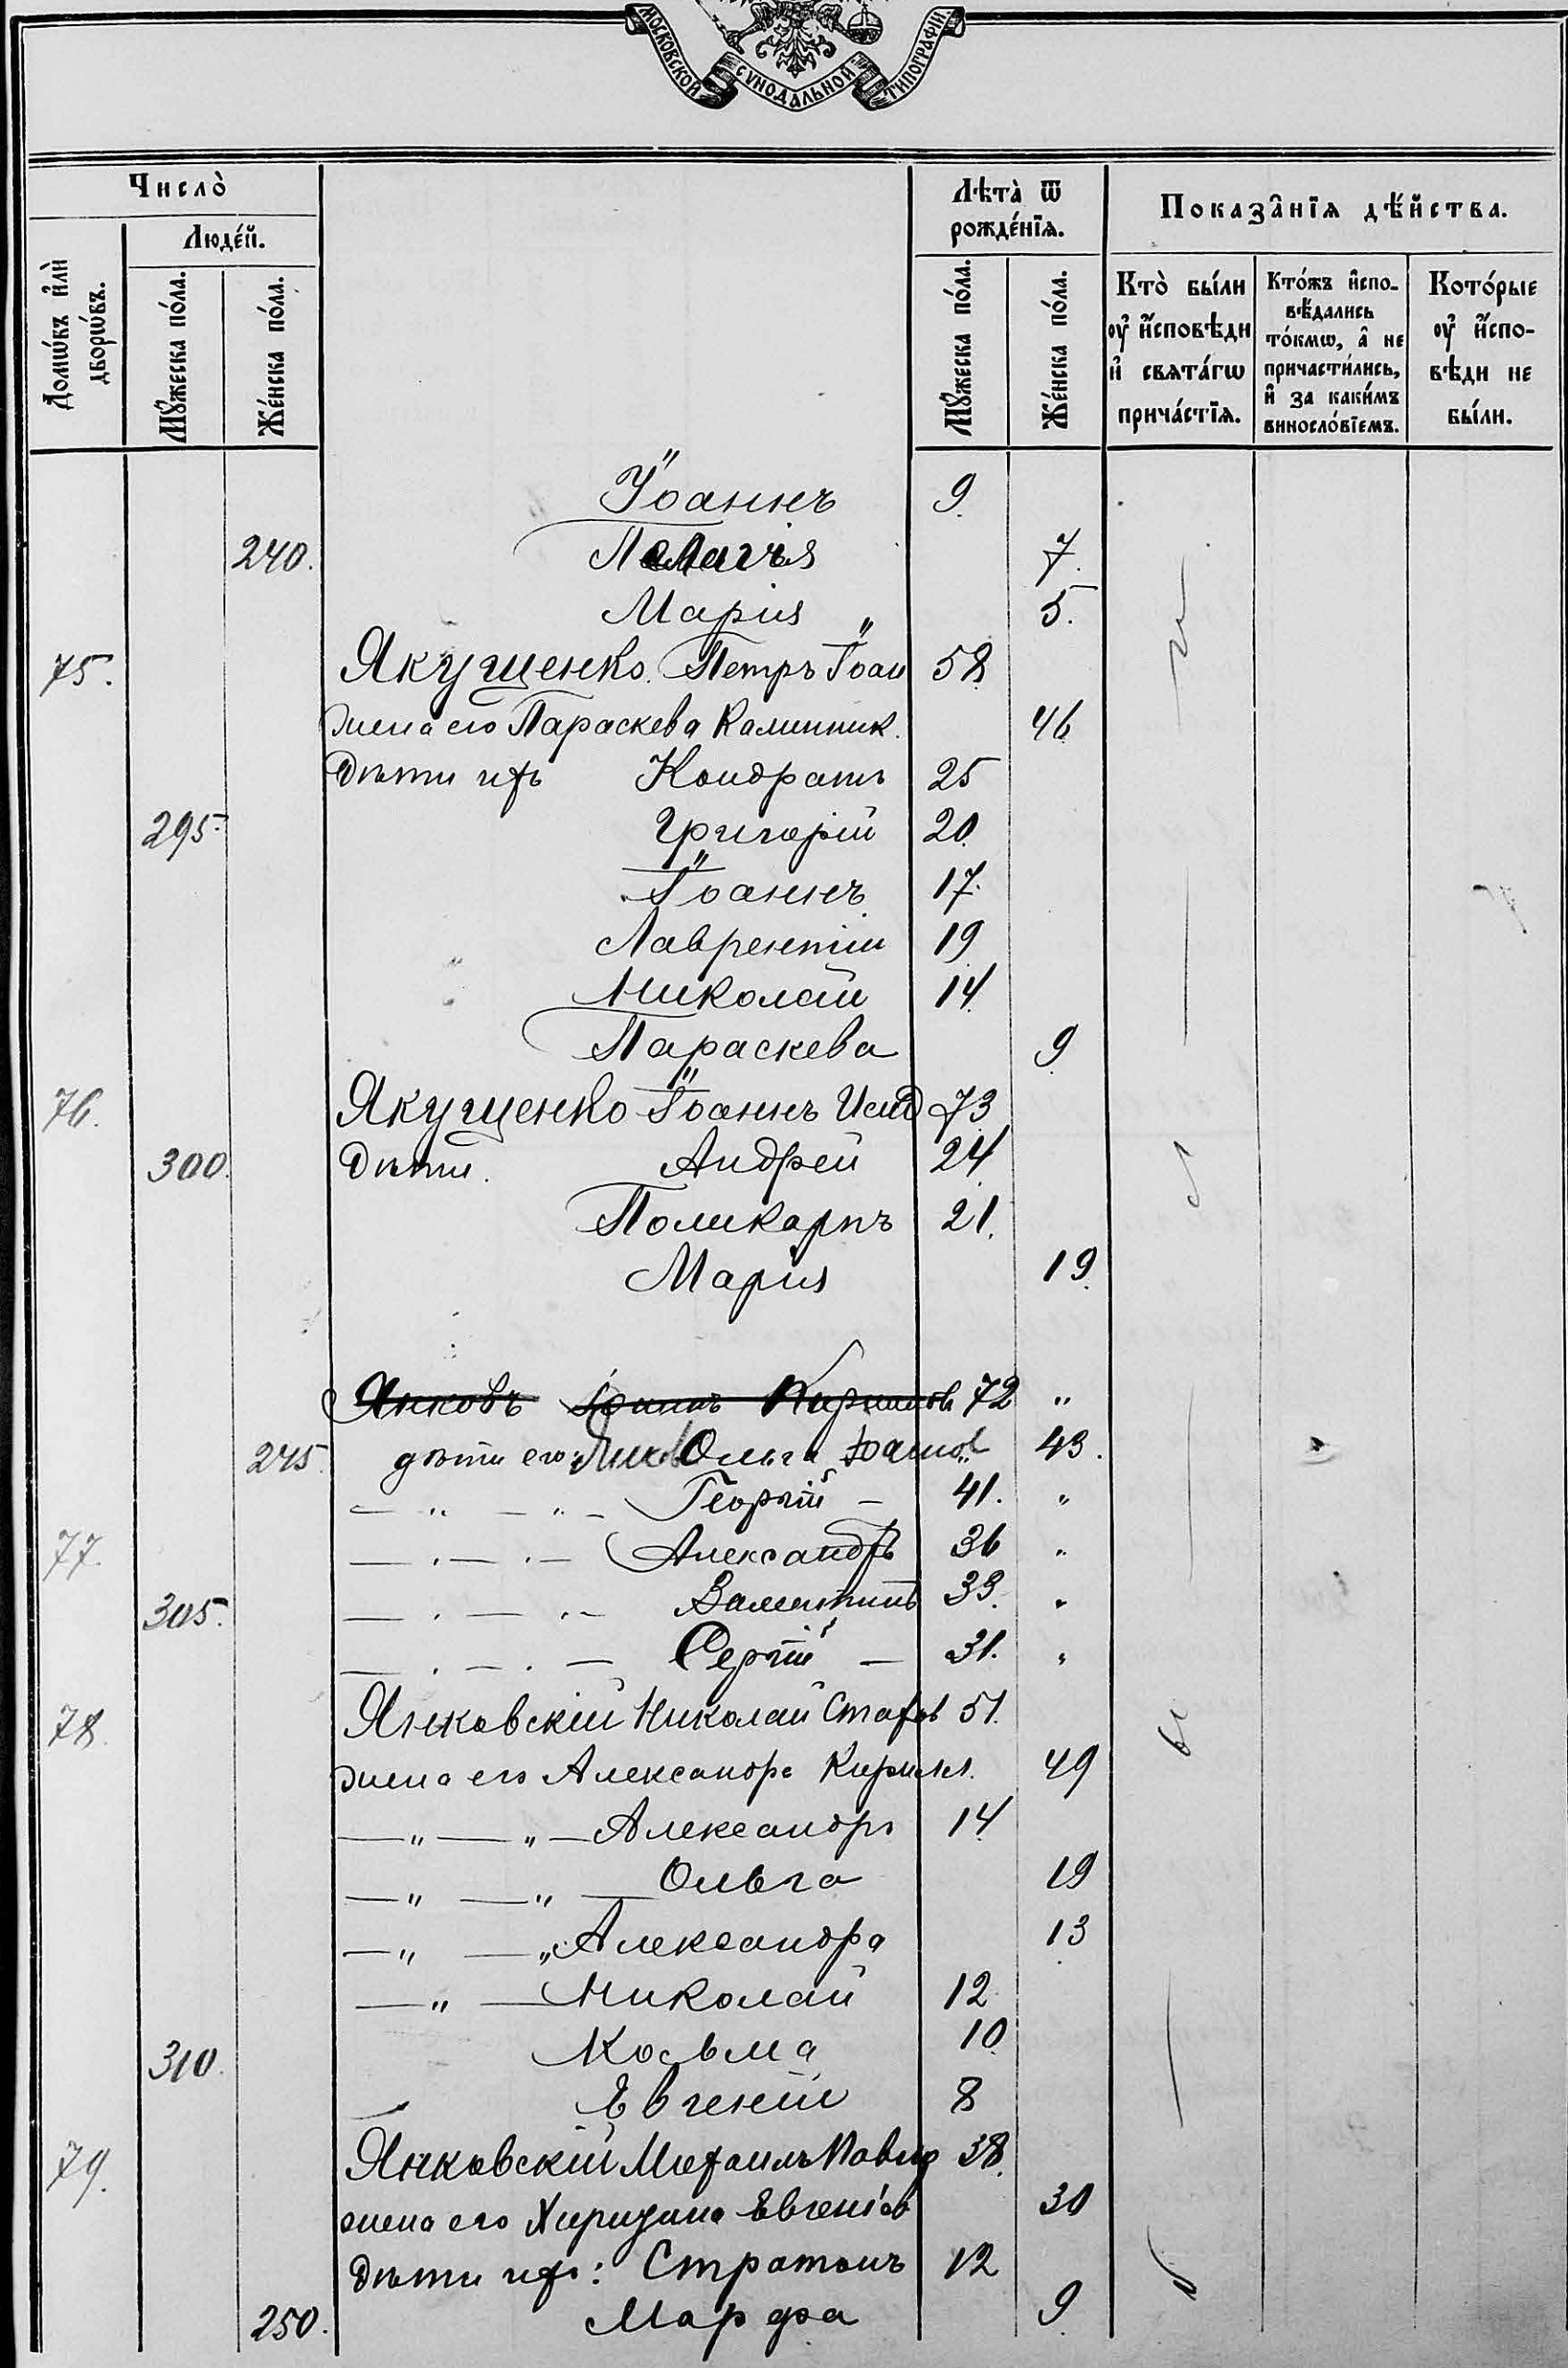 МОСКОВСКОЙ СѴНОДАЛЬНОЙ ТИПОГРАФІИ
Число̀
Люде́й.
Домѡ́въ и҆лѝ дворѡ́въ.
Мꙋ́жеска по́ла.
Же́нска по́ла.
Лѣта̀ ѿ рожде́нїѧ.
Мꙋ́жеска по́ла.
Же́нска по́ла.
Показа̑нїѧ дѣ́йства.
Кто̀ бы́ли оу҆ и҆́сповѣди и҆ свѧта́гѡ прича́стїѧ.
Кто́жъ и҆спо-вѣ́дались то́кмѡ, а҆ не причасти́лись, и҆ за каки́мъ виносло́вїемъ.
Кото́рые оу҆ и҆́спо-вѣди не бы́ли.
Іоаннъ 9
240. Пелагія 7.
Марія 5.
75. Якущенко Петръ Іоан 58
жена его Параскева Каллиник. 46
дѣти ихъ Кондратъ 25
295. Григорій 20
Іоаннъ 17.
Лаврентій 19
Николай 14
Параскева 9
76. Якущенко Іоаннъ Исид 73
300. дѣти. Андрей 24
Поликарпъ 21.
Марія 19.
Янковъ Іоаннъ Кириллов 72 "
245 дѣти его: Янков Ольга Іоаннов 43.
— " — " — Георгій — 41. "
77. — . — . — Александръ 36 "
305. — . — . — Валентинъ 33. "
— . — . — Сергій — 31. "
78. Янковскій Николай Стаф 51.
жена его Александра Кирилл. 49
— " — " — Александръ 14
— " — " — Ольга 19
— " — " Александра 13
— " — Николай 12
310. Косьма 10
Евгеній 8
79. Янковскій Михаилъ Павл 38.
жена его Евгеніев 30
дѣти ихъ: Стратонъ 12
250. Марфа 9